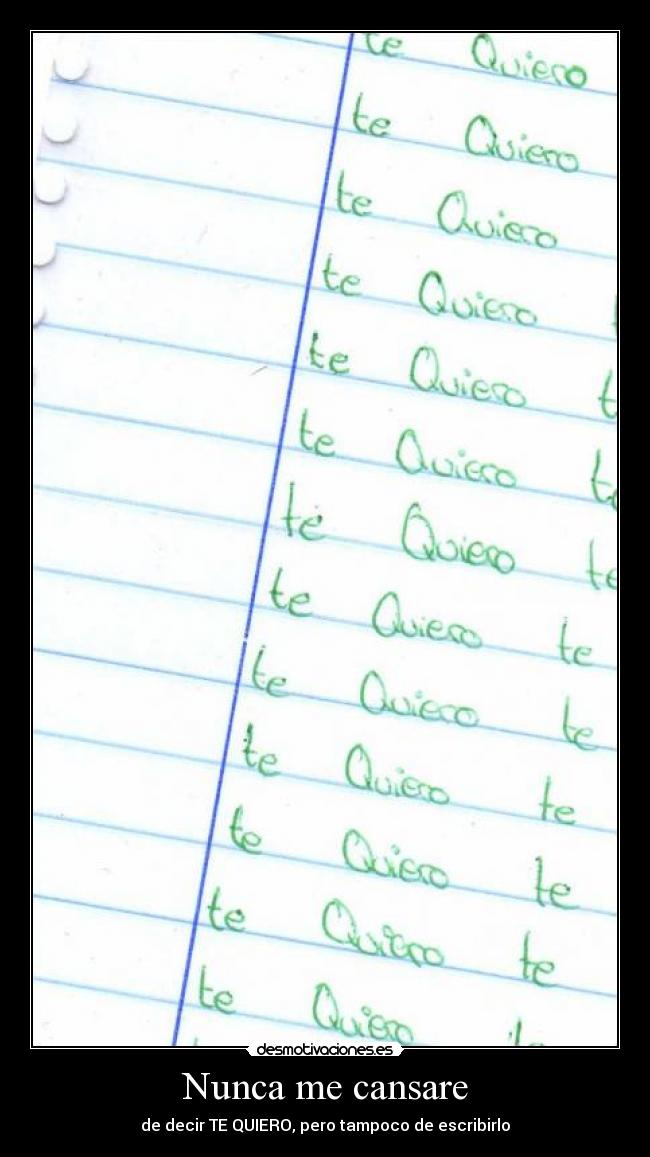 te Quiero
te Quiero
te Quiero
te Quiero
te Quiero t
te Quiero te
te Quiero te
te Quiero te
te Quiero te
te Quiero te
te Quiero te
te Quiero te
te Quiero te
desmotivaciones.es
Nunca me cansare
de decir TE QUIERO, pero tampoco de escribirlo